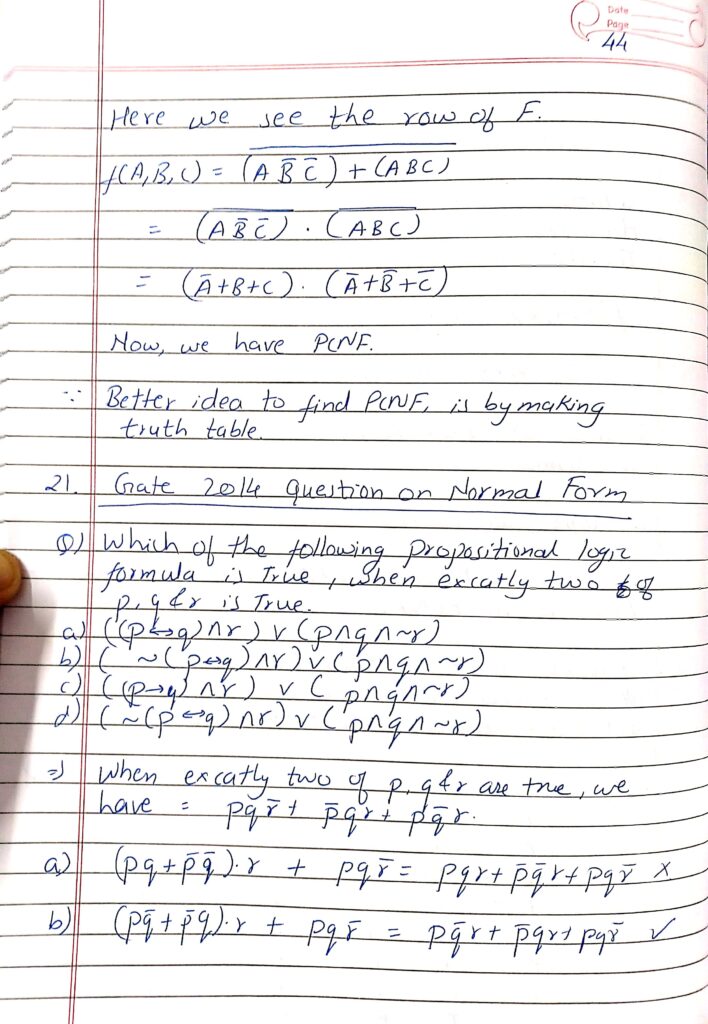 Date
Page
44
Here we see the row of F.
f(A,B,C) = \overline{(A B̄ C̄) + (ABC)}
= \overline{(A B̄ C̄)} . \overline{(ABC)}
= (Ā+B+C) . (Ā+B̄+C̄)
Now, we have PCNF.
∵ Better idea to find PCNF, is by making
truth table.
21. Gate 2014 question on Normal Form
Q) Which of the following propositional logic
formula is True, when excatly two of
p, q & r is True.
a) ((p↔q)∧r) ∨ (p∧q∧~r)
b) (~(p↔q)∧r) ∨ (p∧q∧~r)
c) ((p→q)∧r) ∨ (p∧q∧~r)
d) (~(p↔q)∧r) ∨ (p∧q∧~r)
⇒ When excatly two of p, q & r are true, we
have = pqr̄ + p̄qr + pq̄r.
a) (pq+p̄q̄).r + pqr̄ = pqr+p̄q̄r+pqr̄ ×
b) (pq̄+p̄q).r + pqr̄ = pq̄r+p̄qr+pqr̄ ✓